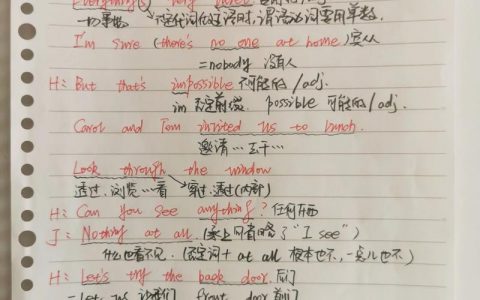 Everything(s) very
一切事物 不定代词作主语时,谓语动词要用单数.
I'm sure (there's no one at home) 宾从
=nobody 没有人
H: But that's impossible 不可能的/adj.
im 否定前缀 possible 可能的/adj.
Carol and Tom invited us to lunch.
邀请…去干…
Look through the window
透过、浏览…看 穿过、透过(内部)
H: Can you see anything? 任何东西
J: Nothing at all. (承上问省略了"I see")
什么也看不见. (否定词+ at all 根本也不,一点儿也不)
H: Let's try the back door. 后门
= let us 让我们 front door 前门